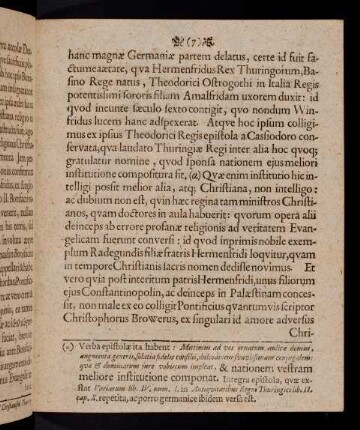 (7)
hanc magnæ Germaniæ partem delatus, certe id fuit fa-
ctum ea ætate, qva Hermenfridus Rex Thuringorum, Ba-
sino Rege natus, Theodorici Ostrogothi in Italia Regis
potentissimi sororis filiam Amalfridam uxorem duxit: id
qvod ineunte sæculo sexto contigit, qvo nondum Win-
fridus lucem hanc adspexerat. Atqve hoc ipsum colligi-
mus ex ipsius Theodorici Regis epistola a Casfiodoro con-
servata, qva laudato Thuringiæ Regi inter alia hoc qvoqꝫ
gratulatur nomine, qvod sponsa nationem ejus meliori
institutione compositura sit. (a) Qvæ enim institutio hic in-
telligi possit melior alia, atqꝫ Christiana, non intelligo:
ac dubium non est, qvin hæc regina tam ministros Christi-
anos, qvam doctores in aula habuerit: qvorum opera alii
deinceps ab errore profanæ religionis ad veritatem Evan-
gelicam fuerunt conversi: id qvod inprimis nobile exem-
plum Radegundis filiæ fratris Hermenfridi loqvitur, qvam
in tempore Christianis sacris nomen dedisse novimus. Et
vero qvia post interitum patris Hermenfridi, unus filiorum
ejus Constantinopolin, ac deinceps in Palæstinam conces-
sit, non male ex eo colligit Pontificius qvantumvis scriptor
Christophorus Browerus, ex singulari id amore adversus
Chri-
(a) Verba epistolæ ita habent:
& nationem vestram
meliore institutione componat. Integra epistola, qvæ ex-
stat Variarum lib. IV. num. I. in Antiqvitatibus Regni Thuringici lib. II.
cap. X. repetita, ac porro germanice ibidem versa est.